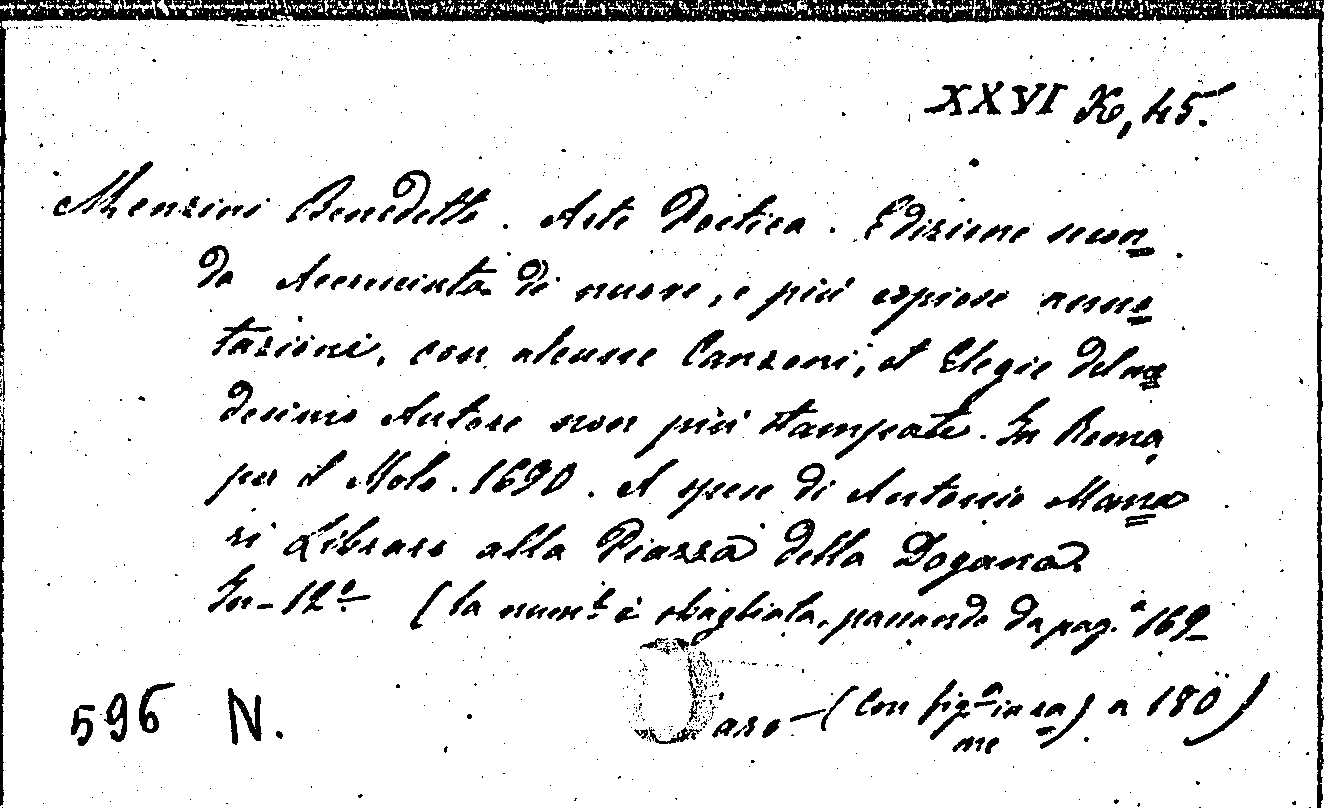 XXVI K, 45.
Menzini Benedetto. Arte Poetica. Edizione secon=
da Accresciuta di nuove, e più copiose anno=
tazioni, con alcune Canzoni, et Elegie del me=
desimo Autore non più stampate. In Roma,
per il Molo. 1690. A spese di Antonio Mana=
ri Libraro alla Piazza della Dogana
In-12.º (la num.e è sbagliata, passando da pag.a 169_
raro – (Con fig.a in ra= a 180)
me)
596 N.